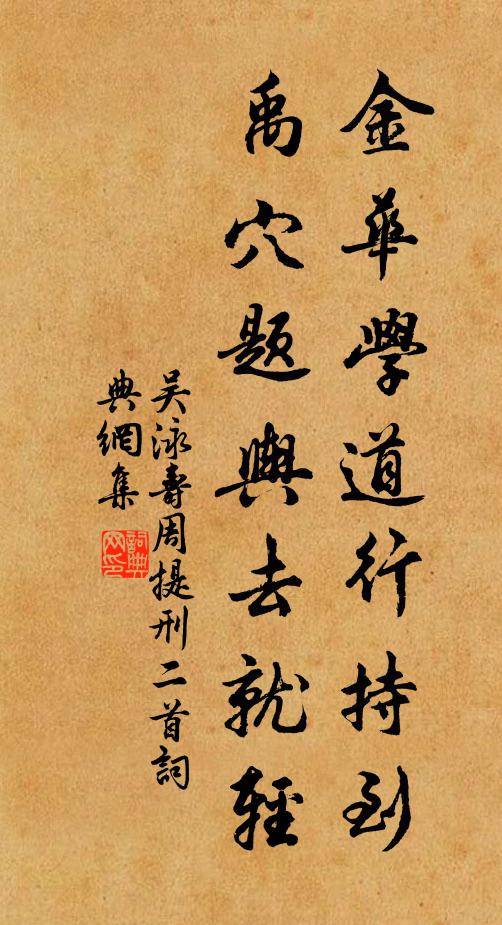 金華學道行持到
禹穴題輿去就輕
吴泳壽周提刑二首詞
典網集
詞典
网印